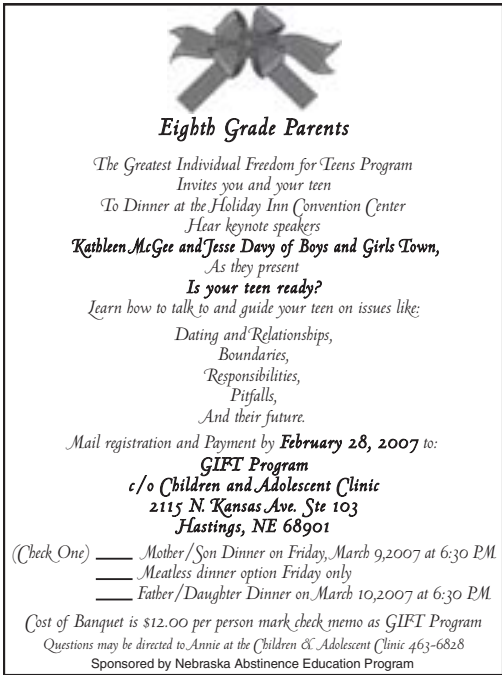 Eighth Grade Parents
The Greatest Individual Freedom for Teens Program
Invites you and your teen
To Dinner at the Holiday Inn Convention Center
Hear keynote speakers
Kathleen McGee and Jesse Davy of Boys and Girls Town,
As they present
Is your teen ready?
Learn how to talk to and guide your teen on issues like:
Dating and Relationships,
Boundaries,
Responsibilities,
Pitfalls,
And their future.
Mail registration and Payment by February 28, 2007 to:
GIFT Program
c/o Children and Adolescent Clinic
2115 N. Kansas Ave. Ste 103
Hastings, NE 68901
(Check One) ____ Mother/Son Dinner on Friday, March 9,2007 at 6:30 PM
____ Meatless dinner option Friday only
____ Father/Daughter Dinner on March 10,2007 at 6:30 PM
Cost of Banquet is $12.00 per person mark check memo as GIFT Program
Questions may be directed to Annie at the Children & Adolescent Clinic 463-6828
Sponsored by Nebraska Abstinence Education Program